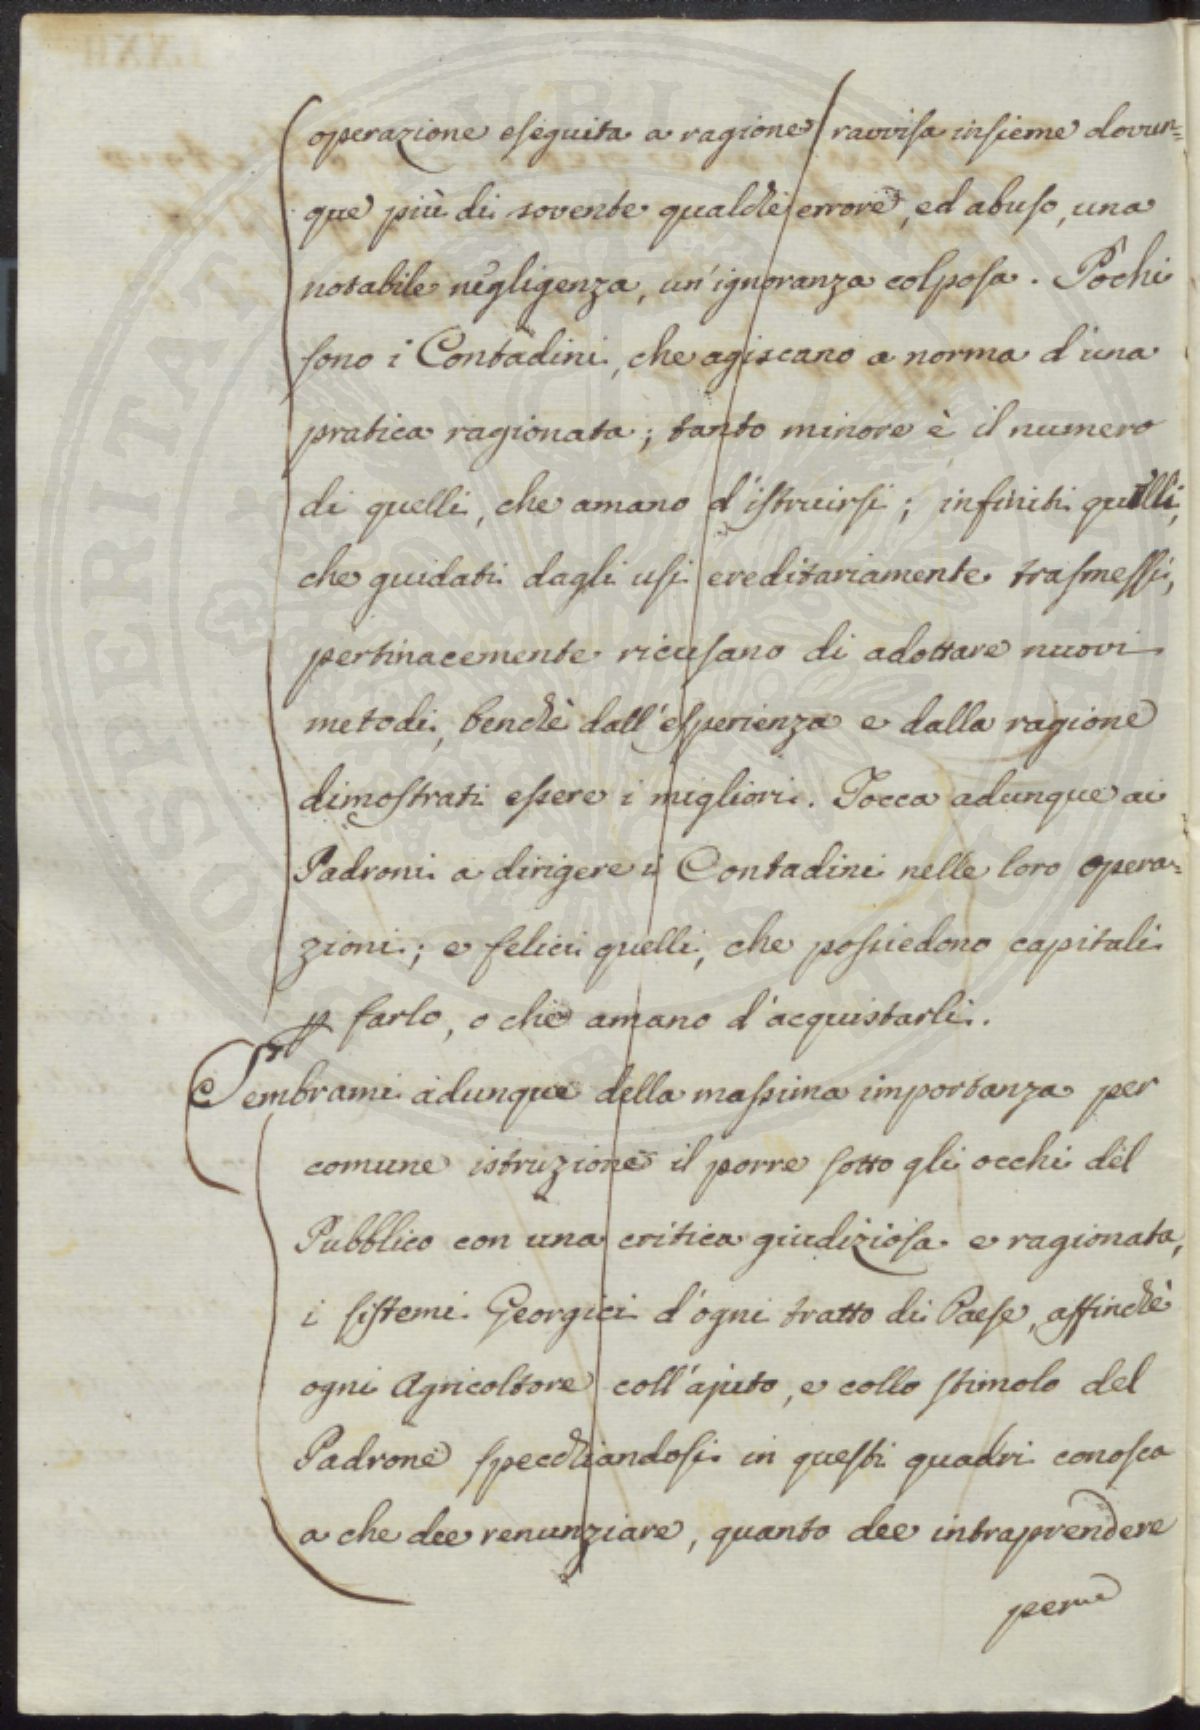 operazione eseguita a ragione ravvisa insieme dovun=
que più di sovente qualche errore, ed abuso, una
notabile negligenza, un'ignoranza colposa. Pochi
sono i Contadini, che agiscano a norma d'una
pratica ragionata; tanto minore è il numero
di quelli, che amano d'istruirsi; infiniti quelli,
che guidati dagli usi ereditariamente trasmessi,
pertinacemente ricusano di adottare nuovi
metodi, benchè dall'esperienza e dalla ragione
dimostrati essere i migliori. Tocca adunque ai
Padroni a dirigere i Contadini nelle loro opera=
zioni; e felici quelli, che possiedono capitali
p farlo, o che amano d'acquistarli.
Sembrami adunque della massima importanza per
comune istruzione il porre sotto gli occhi del
Pubblico con una critica giudiziosa e ragionata,
i sistemi Georgici d'ogni tratto di Paese, affinchè
ogni Agricoltore coll'ajuto, e collo stimolo del
Padrone specchiandosi in questi quadri conosca
a che dee renunziare, quanto dee intraprendere